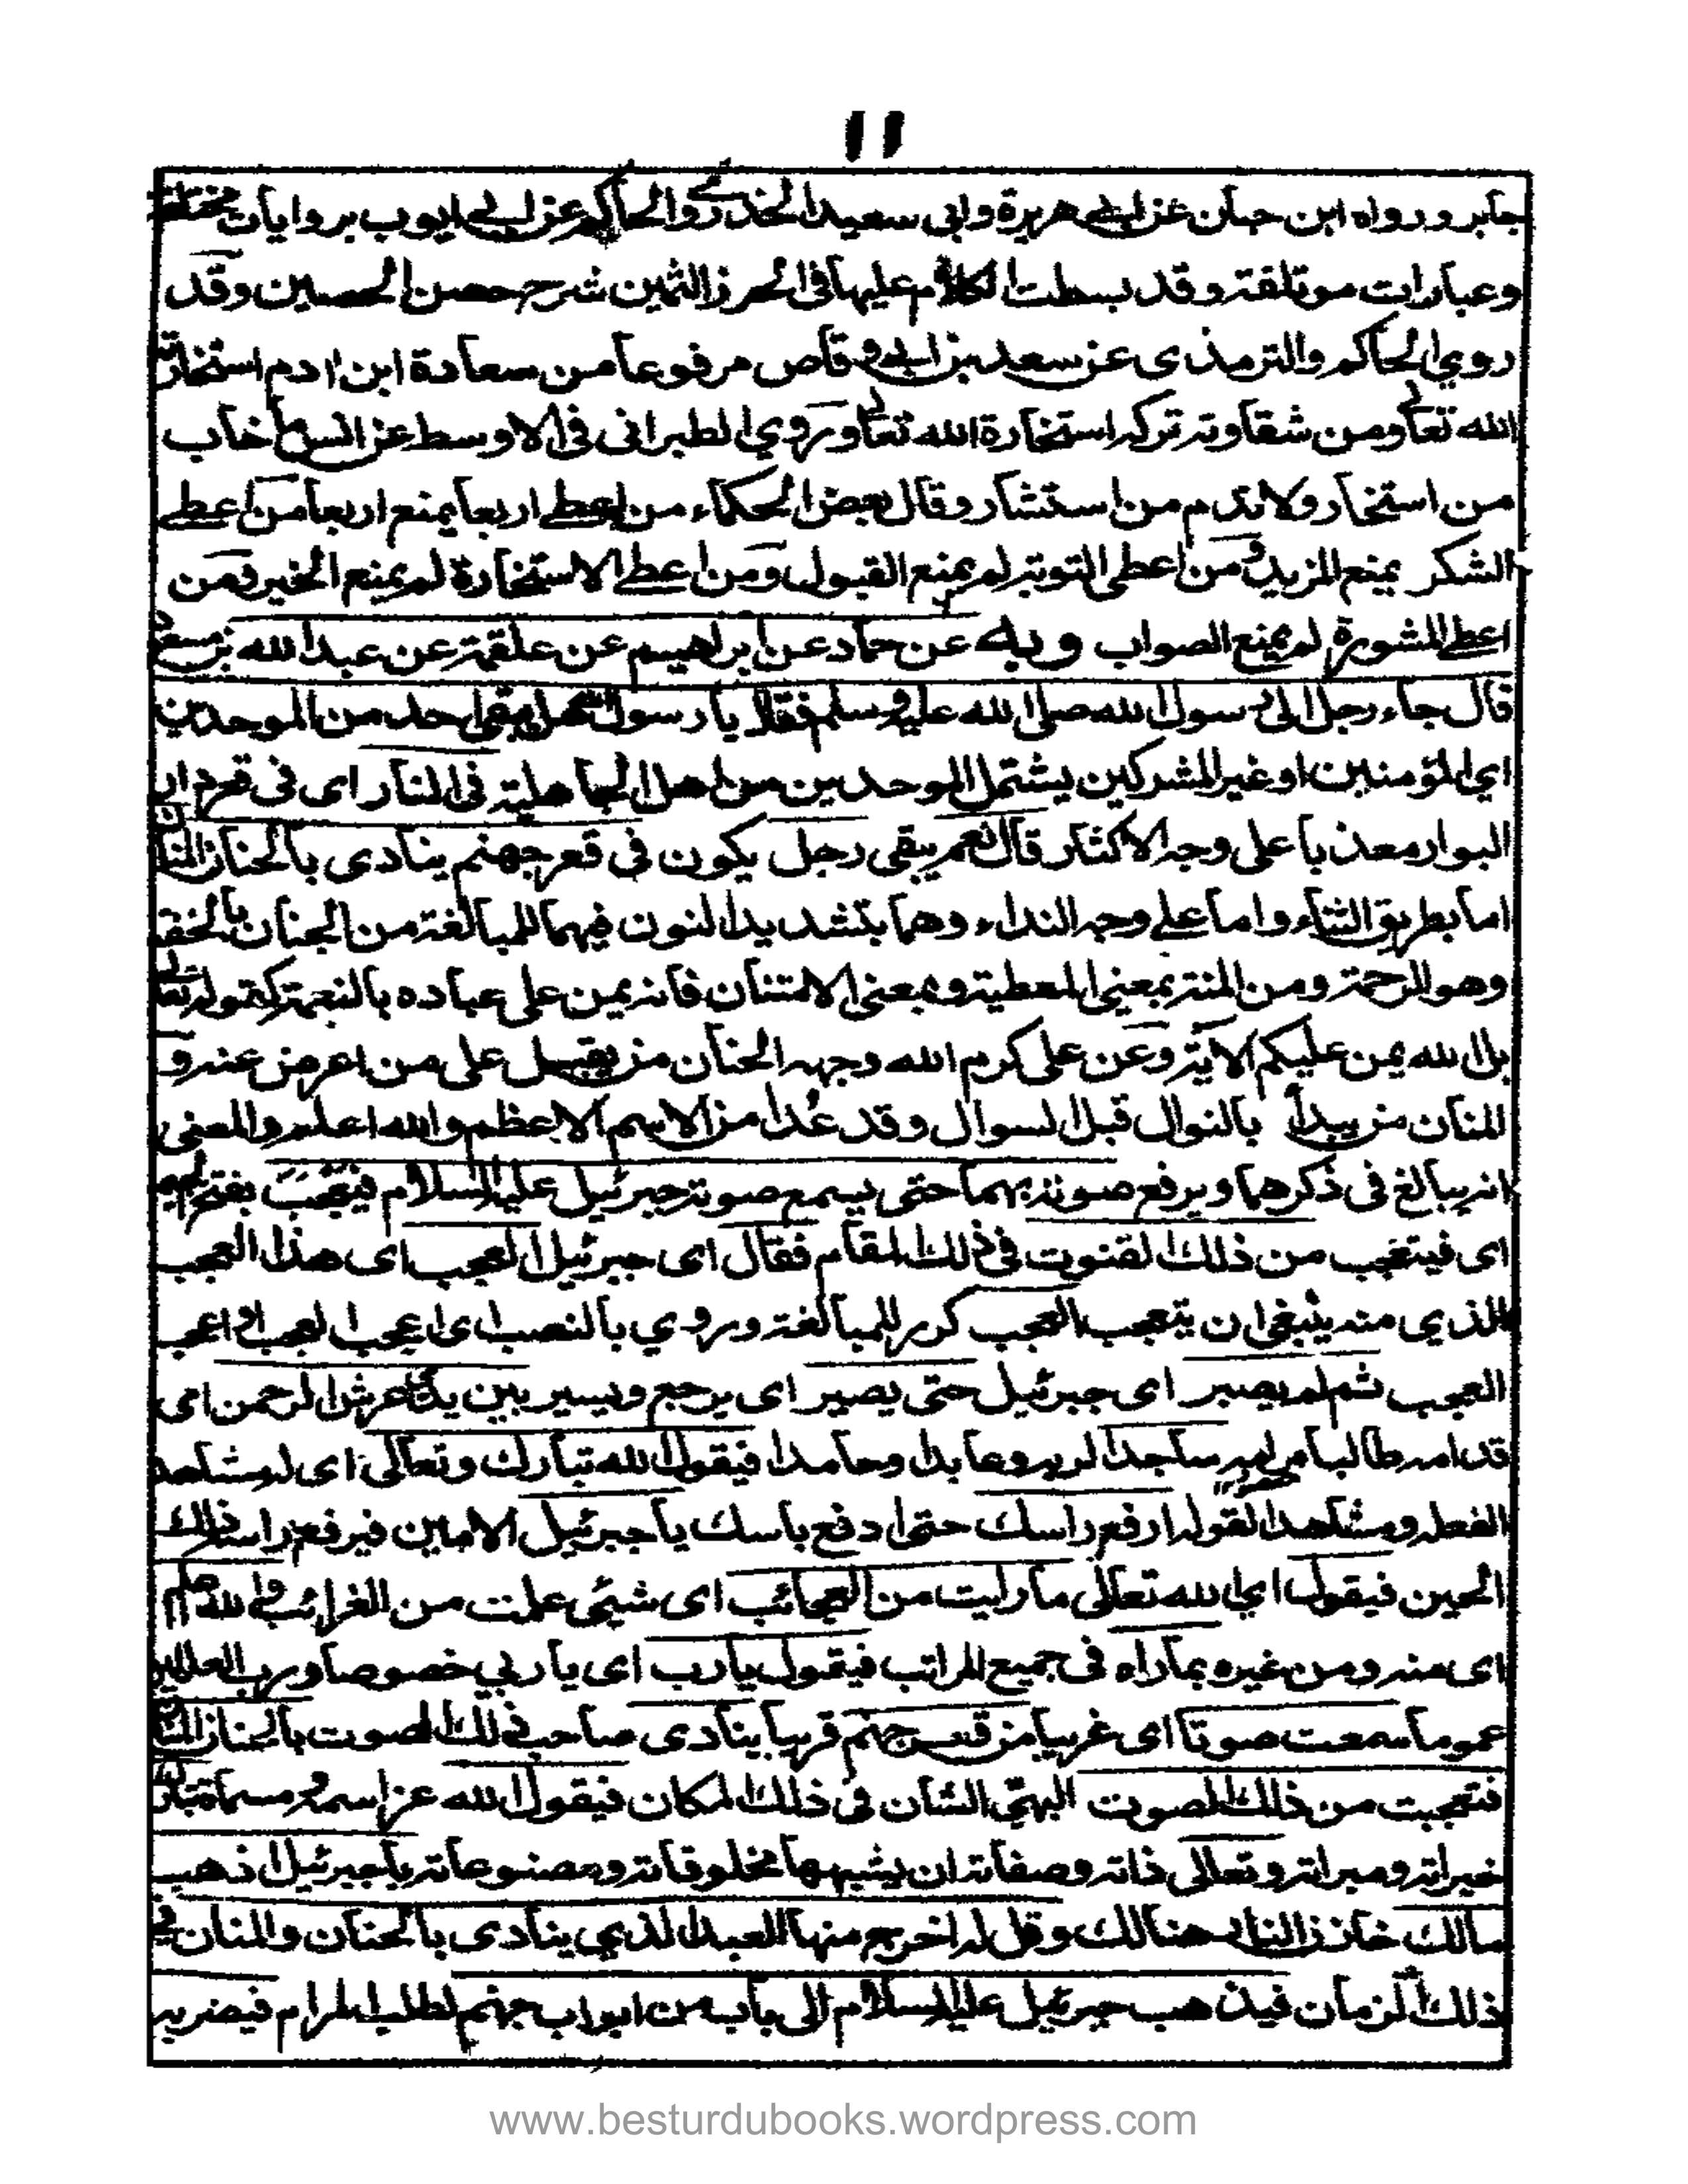 ۱۱
جابر ورواه ابن حبان عن ابي هريرة وابى سعيد الخدري والحاكم عن ابي ايوب بروايات مختلفة
وعبارات موتلفة وقد بسطت الكلام عليها فى الحرز الثمين شرح حصن الحصين وقد
روي الحاكم والترمذى عن سعد بن ابي وقاص مرفوعا من سعادة ابن ادم استخارته
الله تعالى ومن شقاوته تركه استخارة الله تعالى وروي الطبرانى فى الاوسط عن انس ما خاب
من استخار ولا ندم من استشار وقال بعض الحكماء من اعطي اربعا يمنع اربعا من اعطي
الشكر يمنع المزيد ومن اعطى التوبة لم يمنع القبول ومن اعطي الاستخارة لم يمنع الخير ومن
اعطي المشورة لم يمنع الصواب وبه عن حماد عن ابراهيم عن علقمة عن عبد الله بن مسعود
قال جاء رجل الى رسول الله صلى الله عليه وسلم فقال يا رسول الله هل يبقى احد من الموحدين
اي المؤمنين او غير المشركين يشتمل الموحدين من اهل الجاهلية فى النار اى فى قعر دار
البوار معذبا على وجه الاكثار قال نعم يبقى رجل يكون فى قعر جهنم ينادى يا لحنان المنان
اما بطريق الثناء واما علي وجه النداء وهما بتشديد النون فيهما للمبالغة من الحنان بالخفة
وهو الرحمة ومن المنة بمعنى المعطية وبمعنى الامتنان فانه يمن على عباده بالنعمة كقوله تعالى
بل الله يمن عليكم الاية وعن على كرم الله وجهه الحنان من يقبل على من اعرض عنه و
المنان من يبدأ بالنوال قبل السوال وقد عدا من الاسم الاعظم والله اعلم والمعنى
انه يبالغ فى ذكرهما ويرفع صوته بهما حتى يسمع صوته جبرئيل عليه السلام فيتعجب بفتح الجيم
اى فيتعجب من ذلك الصوت فى ذلك المقام فقال اى جبرئيل العجب اى هذا العجب
الذي منه ينبغى ان يتعجب العجب كرر للمبالغة وروي بالنصب اى اعجب العجب او اعجب
العجب ثم لم يصبر اى جبرئيل حتى يصير اى يرجع ويسير بين يدى عرش الرحمن اى
قدامه طالبا من ربه ساجدا لربه وعابدا وحامدا فيقول الله تبارك وتعالى اى له مشاهد
الفعله ومشاهدا لقوله ارفع راسك حتى ادفع باسك يا جبرئيل الامين فيرفع راسه فى ذلك
الحين فيقول اي الله تعالى ما رايت من العجائب اى شيئى علمت من الغرائب والله اعلم
اى منه ومن غيره بما راه فى جميع المراتب فيقول يا رب اى يا ربي خصوصا ورب العالمين
عموما سمعت صوتا اى غريبا من قعر جهنم قريبا ينادى صاحب ذلك الصوت بالحنان المنان
فتعجبت من ذلك الصوت البهيّ الشان فى ذلك المكان فيقول الله عز اسمه ومسماه تبارك
خيراته ومبراته وتعالى ذاته وصفاته ان يشبهها مخلوقاته ومصنوعاته يا جبرئيل اذهب
مالك خازن النار هنالك وقل له اخرج منها العبد الذي ينادى بالحنان والمنان فى
ذلك الزمان فيذهب جبرئيل عليه السلام الى باب من ابواب جهنم لطلب المرام فيضربه
www.besturdubooks.wordpress.com